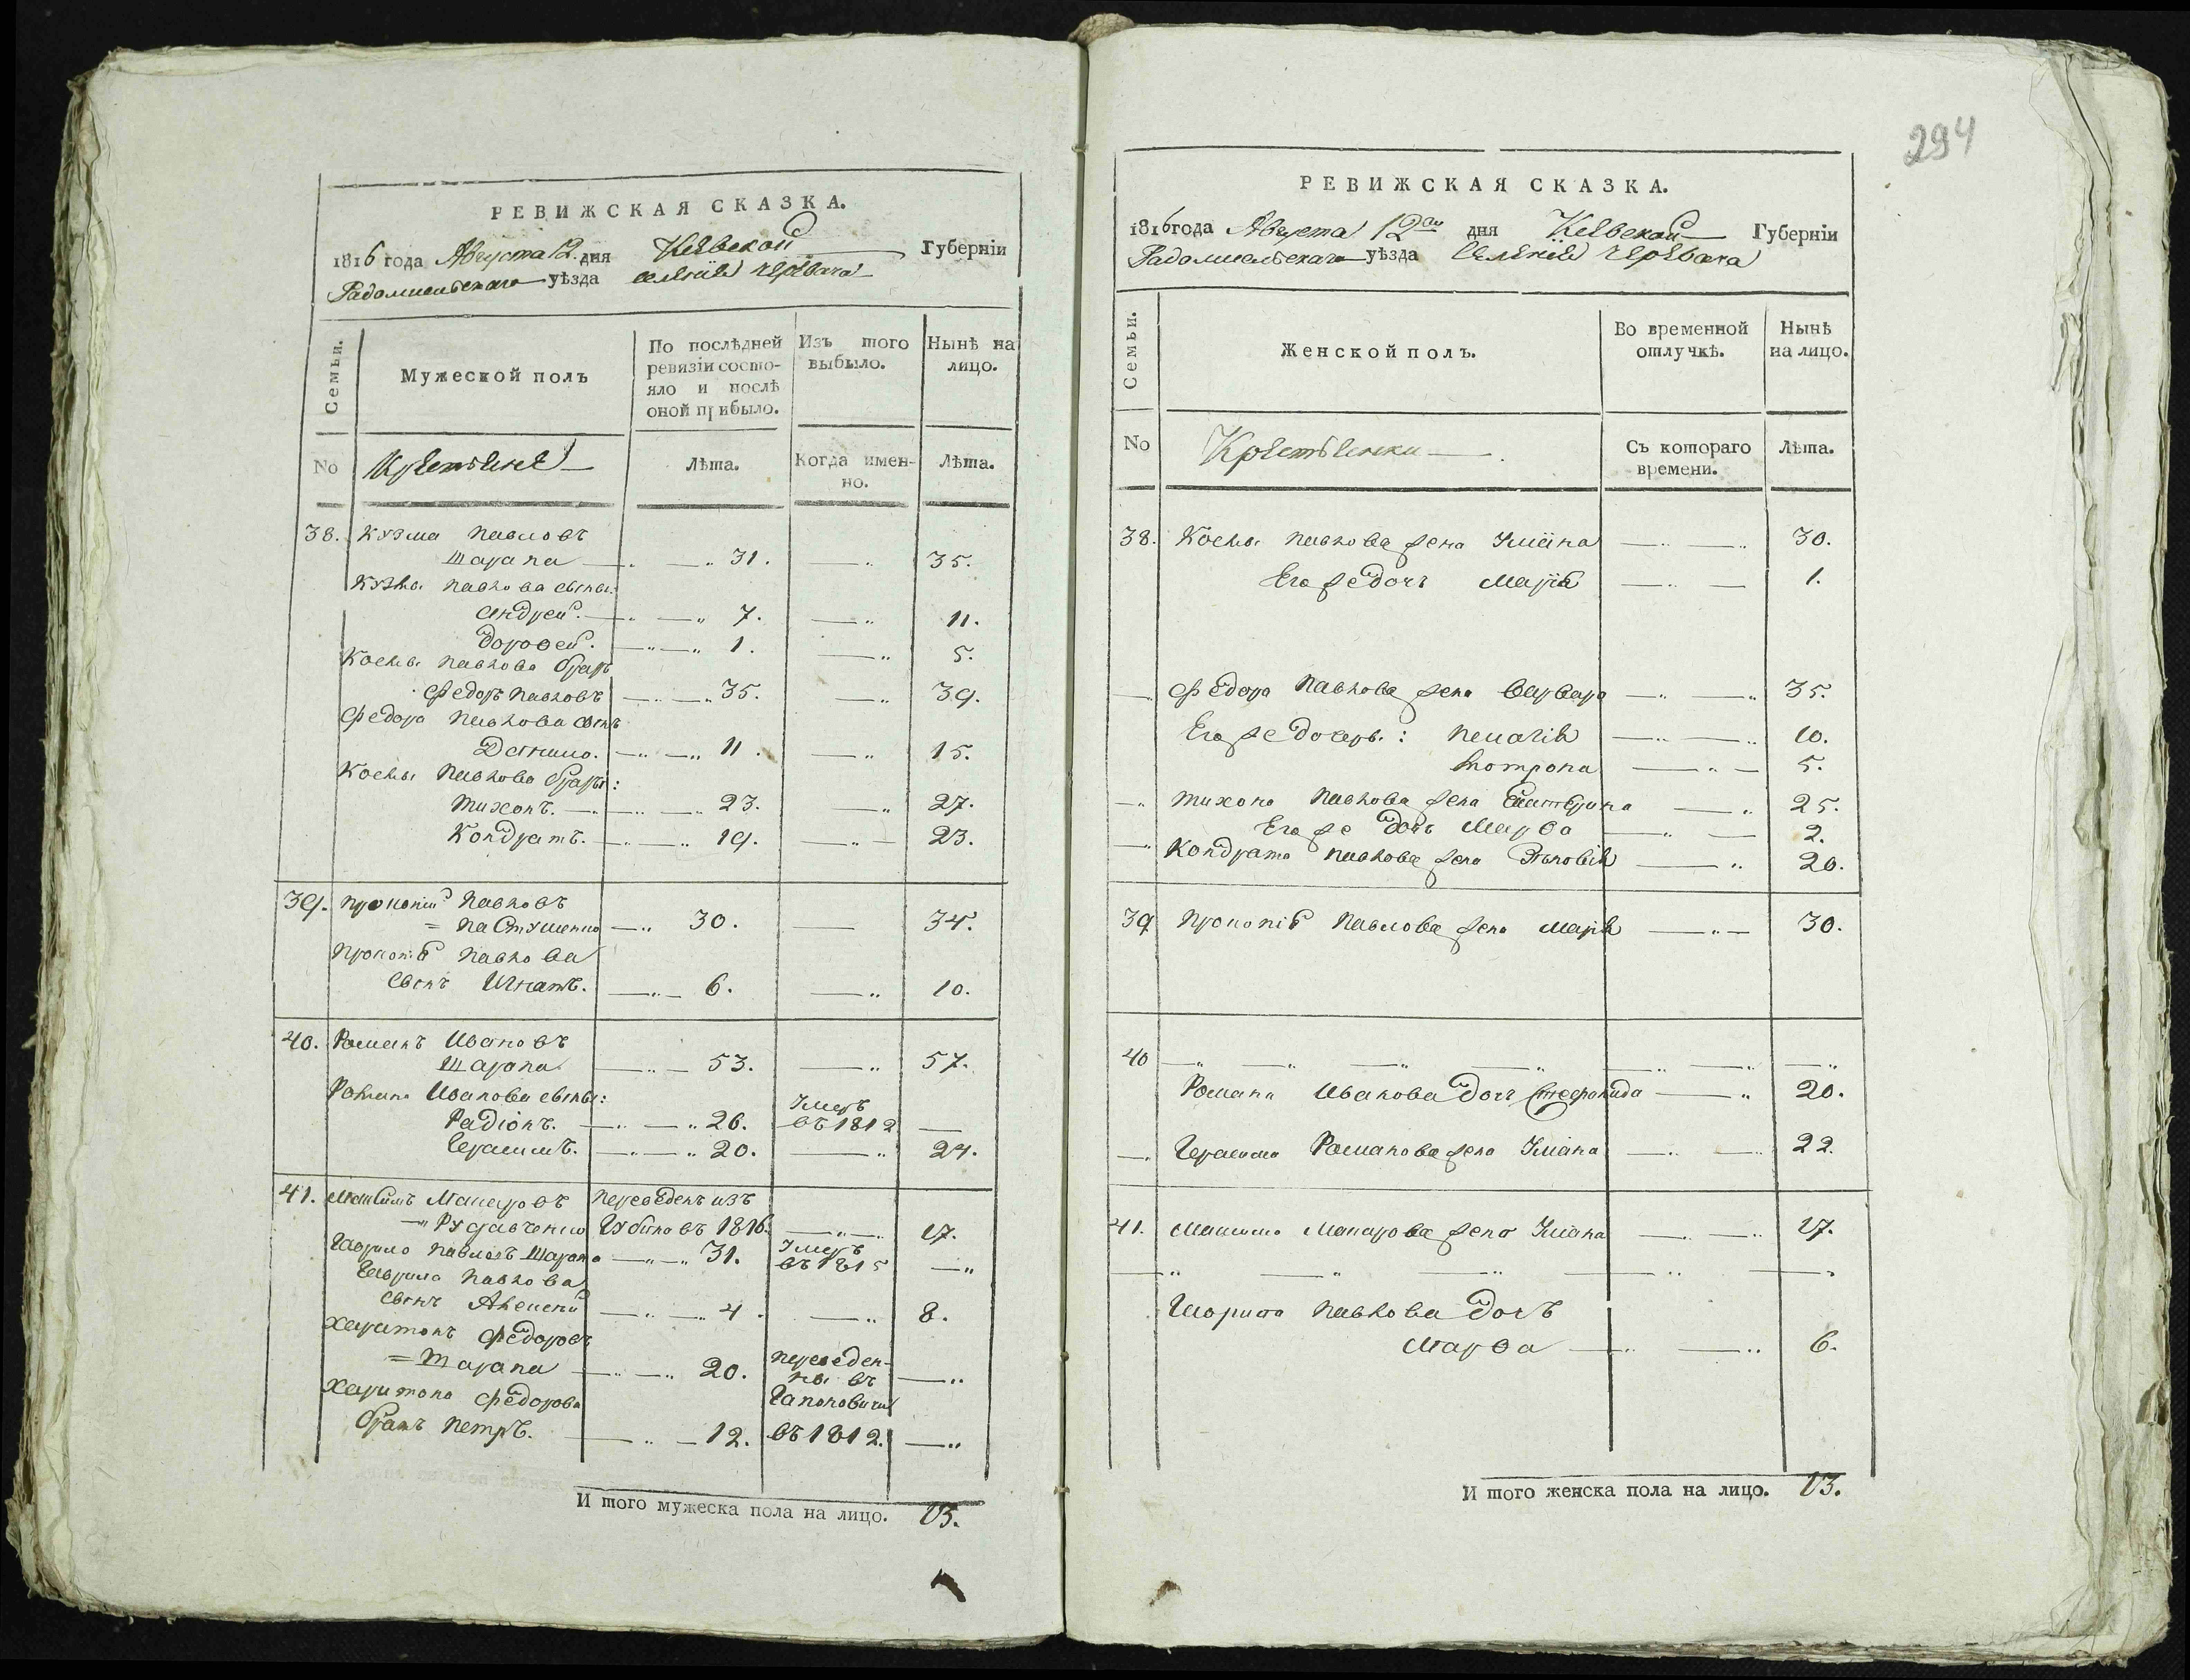 РЕВИЖСКАЯ СКАЗКА.
1816 года Августа 12. дня Кіевской Губерніи
Радомысльскаго уѣзда селенія Черевача
Семьи.
Мужеской полъ
По послѣдней ревизіи состояло и послѣ оной прибыло.
Изъ того выбыло.
Нынѣ на лицо.
No Крестьяне Лѣта. Когда именно. Лѣта.
38. Кузма Павловъ
Шарапа 31. 35.
Кузмы Павлова сыны:
Андрей. 7. 11.
Дорофей. 1. 5.
Космы Павлова братъ
Федоръ Павловъ 35. 39.
Федора Павлова сынъ
Данило. 11. 15.
Космы Павлова братья:
Тихонъ. 23. 27.
Кондратъ. 19. 23.
39. Прокопій Павловъ
= Пастушенко 30. 34.
Прокопія Павлова
сынъ Игнатъ. 6. 10.
40. Романъ Ивановъ
Шарапа 53. 57.
Романа Иванова сыны:
Радіонъ. 26. Умеръ въ 1812
Герасимъ. 20. 24.
41. Максимъ Макаровъ Переведенъ изъ
Рудавченко Губина въ 1816. 17.
Гаврило Павловъ Шарапа 31. Умеръ въ 1815
Гаврила Павлова
сынъ Алексей 4. 8.
Харитонъ Федоровъ
= Шарапа 20. Переведены въ
Харитона Федорова Гапоновичи
братъ Петръ. 12. въ 1812.
И того мужеска пола на лицо. 13.
294
РЕВИЖСКАЯ СКАЗКА.
1816 года Августа 12го дня Кіевской Губерніи
Радомысльскаго уѣзда Селенія Черевача
Семьи.
Женской полъ.
Во временной отлучкѣ.
Нынѣ на лицо.
No Крестьянки Съ котораго времени. Лѣта.
38. Космы Павлова жена Уліяна 30.
Его же дочь Марія 1.
Федора Павлова жена Варвара 35.
Его же дочери: Пелагія 10.
Мотрона 5.
Тихона Павлова жена Екатерина 25.
Его же дочь Марфа 2.
Кондрата Павлова жена Зѣновія 20.
39 Прокопія Павлова жена Марія 30.
40
Романа Иванова дочь Стефанида 20.
Герасима Романова жена Уліана 22.
41. Максима Макарова жена Уліана 17.
Гаврила Павлова дочь
Марфа 6.
И того женска пола на лицо. 13.